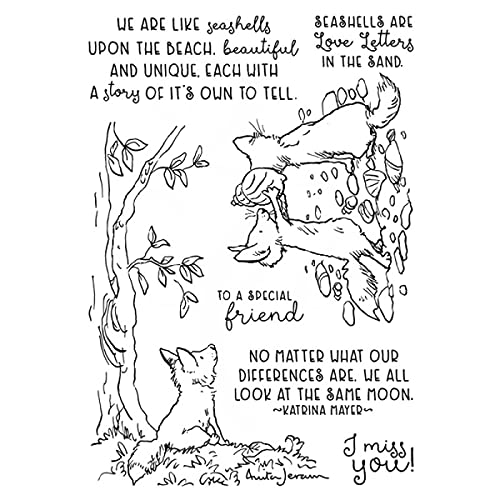 WE ARE LIKE seashells
UPON THE BEACH, beautiful
AND UNIQUE, EACH WITH
A story OF IT'S OWN TO TELL.
SEASHELLS ARE
Love Letters
IN THE SAND.
TO A SPECIAL
friend
NO MATTER WHAT OUR
DIFFERENCES ARE, WE ALL
LOOK AT THE SAME MOON.
~KATRINA MAYER~
I miss
you!
Anita Jeram